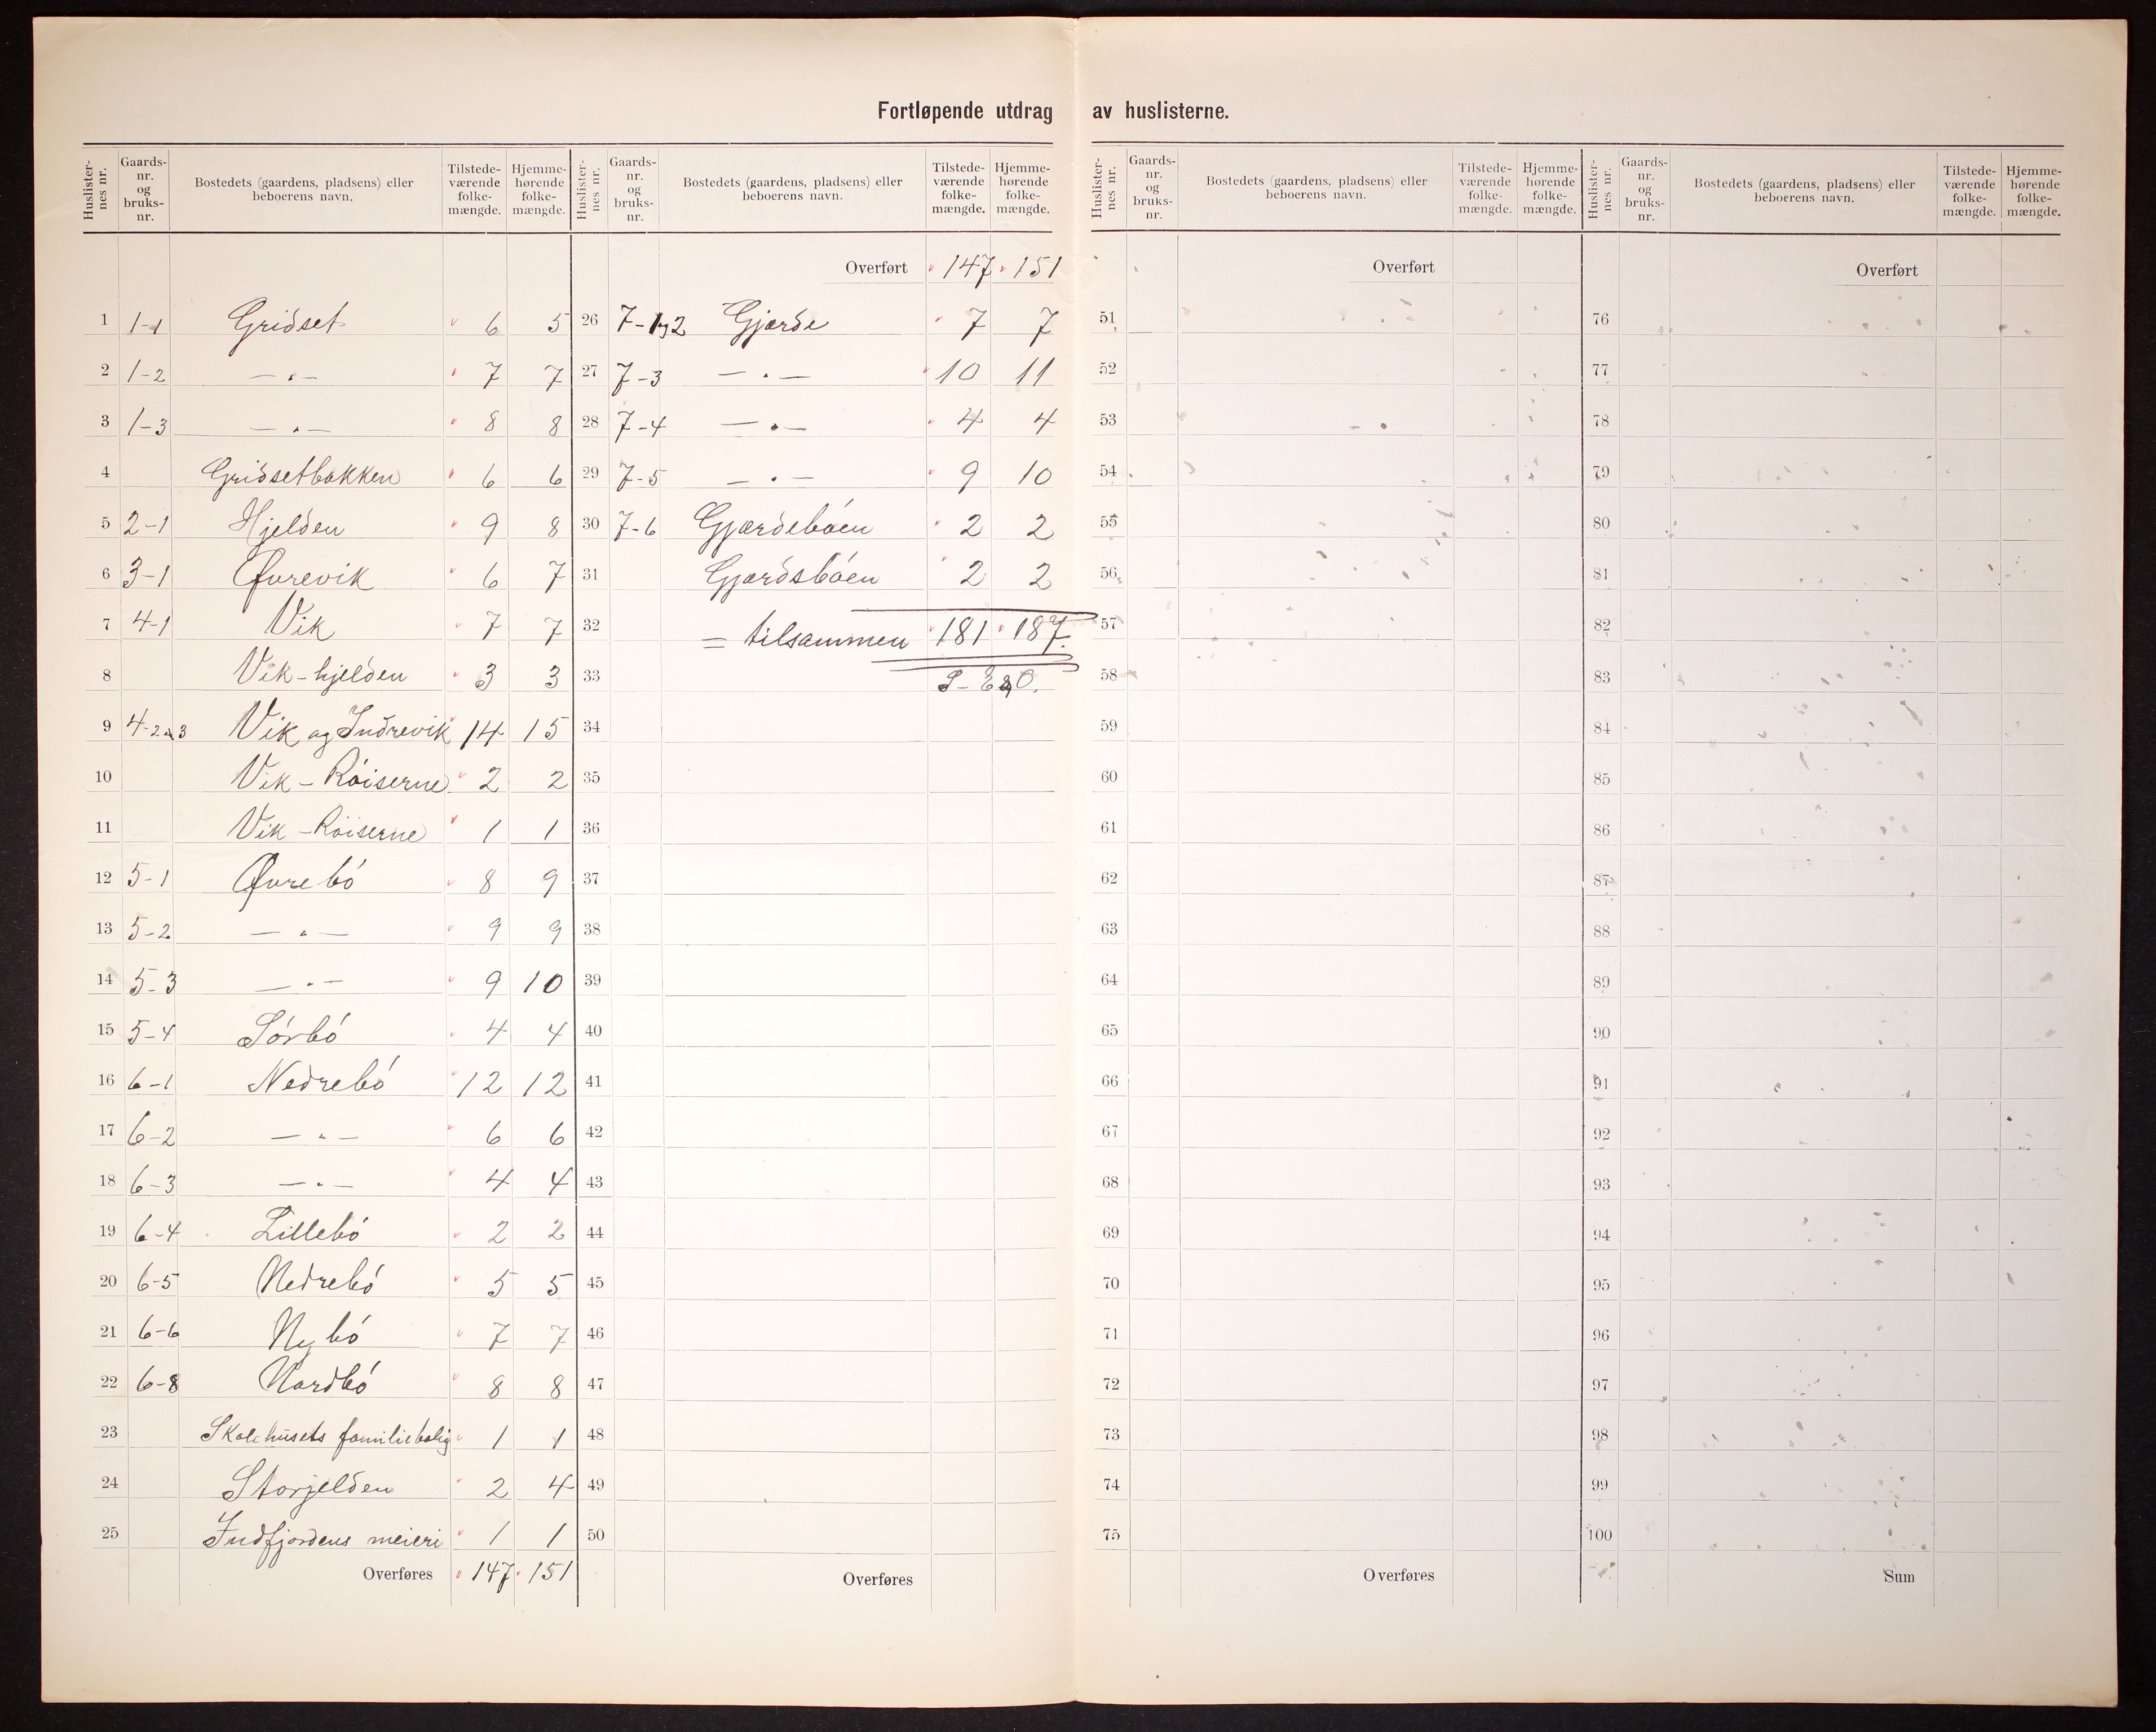 Fortløpende utdrag av huslisterne.
Huslisternes nr. Gaards-nr. og bruks-nr. Bostedets (gaardens, pladsens) eller beboerens navn. Tilstedeværende folkemængde. Hjemmehørende folkemængde.
1 1-1 Gridset 6 5
2 1-2 — „ — 7 7
3 1-3 — „ — 8 8
4 Gridsetbakken 6 6
5 2-1 Hjelden 9 8
6 3-1 Øvrevik 6 7
7 4-1 Vik 7 7
8 Vik-hjelden 3 3
9 4-2 3 Vik og Indrevik 14 15
10 Vik - Röiserne 2 2
11 Vik - Röiserne 1 1
12 5-1 Øvrebó 8 9
13 5-2 — „ — 9 9
14 5-3 — „ — 9 10
15 5-4 Sórbó 4 4
16 6-1 Nedrebó 12 12
17 6-2 — „ — 6 6
18 6-3 — „ — 4 4
19 6-4 Lillebó 2 2
20 6-5 Nedrebó 5 5
21 6-6 Nybó 7 7
22 6-8 Nordbó 8 8
23 Skolehusets familiebolig 1 1
24 Storjelden 2 4
25 Indfjordens meieri 1 1
Overføres 147 151
Huslisternes nr. Gaards-nr. og bruks-nr. Bostedets (gaardens, pladsens) eller beboerens navn. Tilstedeværende folkemængde. Hjemmehørende folkemængde.
Overført 147 151
26 7-1og2 Gjærde 7 7
27 7-3 — „ — 10 11
28 7-4 — „ — 4 4
29 7-5 — „ — 9 10
30 7-6 Gjærdebóen 2 2
31 Gjærdsbóen 2 2
32 = tilsammen 181 187.
33
34
35
36
37
38
39
40
41
42
43
44
45
46
47
48
49
50
Overføres
Huslisternes nr. Gaards-nr. og bruks-nr. Bostedets (gaardens, pladsens) eller beboerens navn. Tilstedeværende folkemængde. Hjemmehørende folkemængde.
Overført
51
52
53
54
55
56
57
58
59
60
61
62
63
64
65
66
67
68
69
70
71
72
73
74
75
Overføres
Huslisternes nr. Gaards-nr. og bruks-nr. Bostedets (gaardens, pladsens) eller beboerens navn. Tilstedeværende folkemængde. Hjemmehørende folkemængde.
Overført
76
77
78
79
80
81
82
83
84
85
86
87
88
89
90
91
92
93
94
95
96
97
98
99
100
Sum